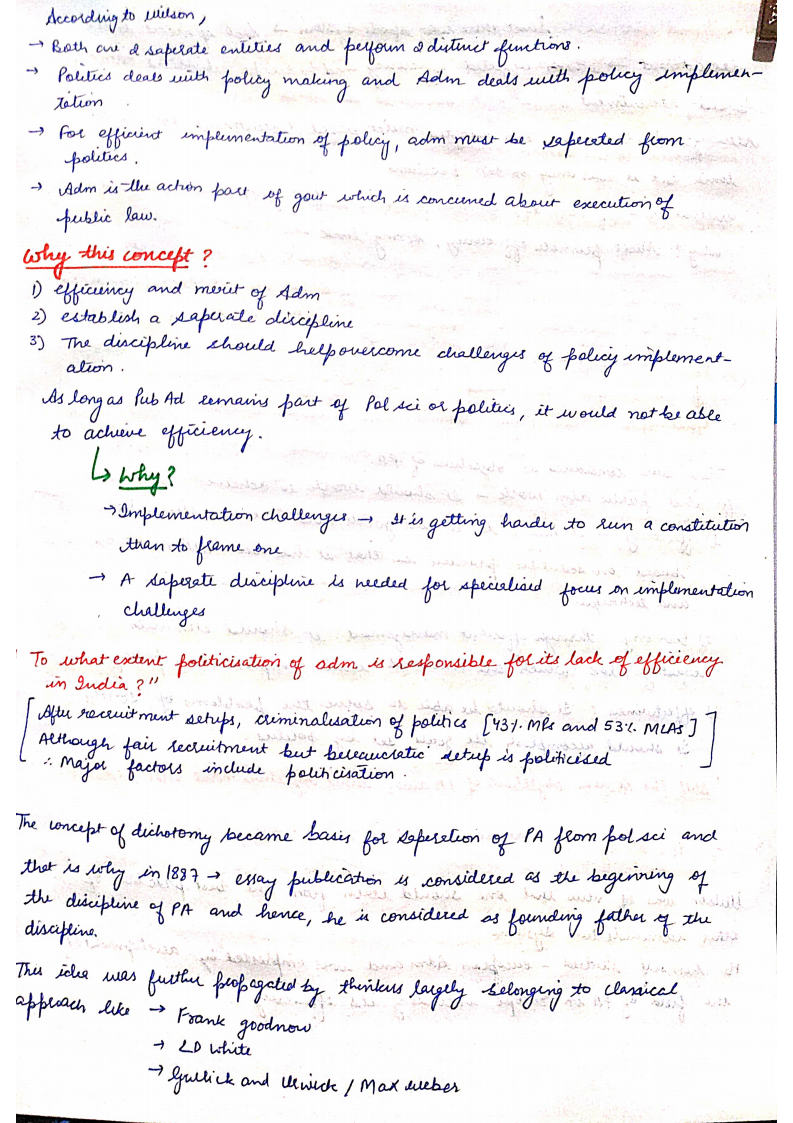 According to Wilson,
→ Both are 2 saperate entities and perform 2 distinct functions.
→ Politics deals with policy making and Adm deals with policy implemen-
tation
→ For efficient implementation of policy, adm must be saperated from
politics.
→ Adm is the action part of govt which is concerned about execution of
public law.
Why this concept?
1) efficiency and merit of Adm
2) establish a saperate discipline
3) The discipline should help overcome challenges of policy implement-
ation.
As long as Pub Ad remains part of Pol sci or politics, it would not be able
to achieve efficiency.
↳ Why?
→ Implementation challenges → It is getting harder to run a constitution
than to frame one
→ A saperate discipline is needed for specialised focus on implementation
challenges
To what extent politicisation of adm is responsible for its lack of efficiency
in India?"
[After recruitment setups, criminalisation of politics [43% MPs and 53% MLAs]
Although fair recruitment but bereaucratic setup is politicised
∴ Major factors include politicisation.]
The concept of dichotomy became basis for seperation of PA from pol sci and
that is why in 1887 → essay publication is considered as the beginning of
the discipline of PA and hence, he is considered as founding father of the
discipline.
This idea was further propagated by thinkers largely belonging to classical
approach like → Frank goodnow
→ LD White
→ Gullick and Urwick / Max weber